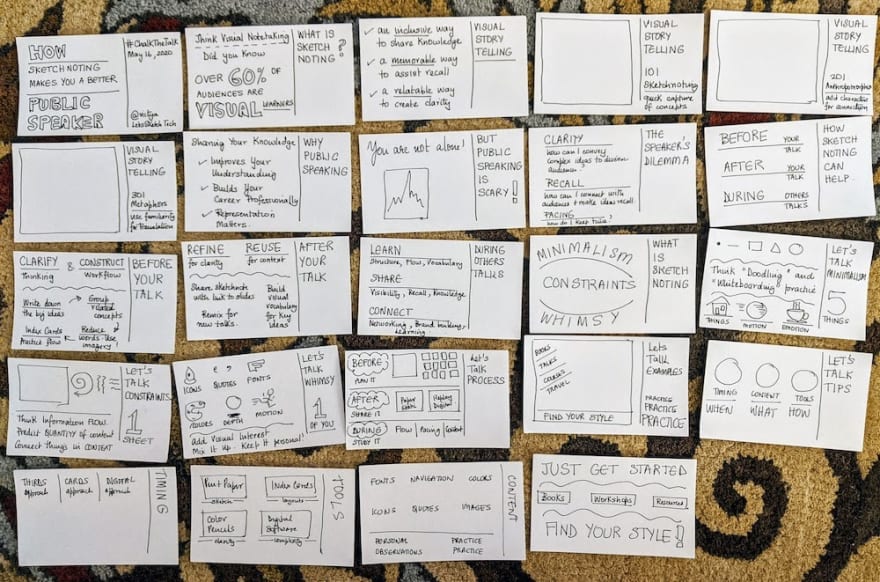 HOW
SKETCHNOTING
MAKES YOU A BETTER
PUBLIC
SPEAKER
#ChalkTheTalk
May 16, 2020
Lets Sketch Tech
Think Visual Notetaking
Did you Know
OVER 60% OF
AUDIENCES ARE
VISUAL LEARNERS
WHAT IS
SKETCH
NOTING?
✓ an inclusive way
to share Knowledge
✓ a memorable way
to assist recall
✓ a relatable way
to create clarity
VISUAL
STORY
TELLING
VISUAL
STORY
TELLING
101
Sketchnoting
quick capture
of concepts
VISUAL
STORY
TELLING
201
add character
for connection
VISUAL
STORY
TELLING
301
Metaphors
use familiarity
for translation
Sharing Your Knowledge
✓ Improves Your
Understanding
✓ Builds Your
Career Professionally
✓ Representation
Matters.
WHY
PUBLIC
SPEAKING
You are not alone!
BUT
PUBLIC
SPEAKING
IS
SCARY!
CLARITY
how can I convey
complex ideas to diverse
audience
RECALL
how can I connect with
audience & make ideas recall
PACING
how do I keep time
THE
SPEAKER'S
DILEMMA
BEFORE YOUR TALK
AFTER YOUR TALK
DURING OTHERS TALKS
HOW
SKETCH
NOTING
CAN
HELP
CLARIFY & CONSTRUCT
Thinking Workflow
Write down → Group
the big ideas related
concepts
Index Cards Reduce
Practice flow words. Use
imagery!
BEFORE
YOUR
TALK
REFINE REUSE
for clarity for context
Share sketchnote Build
with link to slides visual
vocabulary
Remix for for Key
new talks. Ideas!
AFTER
YOUR
TALK
LEARN
Structure, Flow, Vocabulary
SHARE
Visibility, Recall, Knowledge
CONNECT
Networking, Brand building,
Learning
DURING
OTHERS
TALKS
MINIMALISM
CONSTRAINTS
WHIMSY
WHAT
IS
SKETCH
NOTING
Think "Doodling" and
"Whiteboarding" practice
THINGS MOTION EMOTION
LET'S
TALK
MINIMALISM
5
THINGS
Think Information Flow.
Predict QUANTITY of content
Connect things in CONTEXT
LET'S
TALK
CONSTRAINTS
1
SHEET
ICONS QUOTES FONTS
DEPTH MOTION
Add Visual Interest
Mix it Up. Keep it personal!
LET'S
TALK
WHIMSY
1
OF YOU
BEFORE
PLAN IT
AFTER
SHARE IT
DURING
STUDY IT
Flow | Pacing | Content
Let's
Talk
PROCESS
BOOKS
TALKS
COURSES
TRAVEL
FIND YOUR STYLE
Lets
Talk
EXAMPLES
PRACTICE
PRACTICE
PRACTICE
TIMING CONTENT TOOLS
WHEN WHAT HOW
LET'S
TALK
TIPS
THIRDS CARDS DIGITAL
approach approach approach
TIMING
Pen+Paper Index Cards
sketch layouts
Color Digital
Pencils Software
clarity
TOOLS
FONTS NAVIGATION COLORS
ICONS QUOTES IMAGES
PERSONAL PRACTICE
OBSERVATIONS PRACTICE
CONTENT
JUST GET STARTED
Books Workshops Resources
FIND YOUR STYLE!